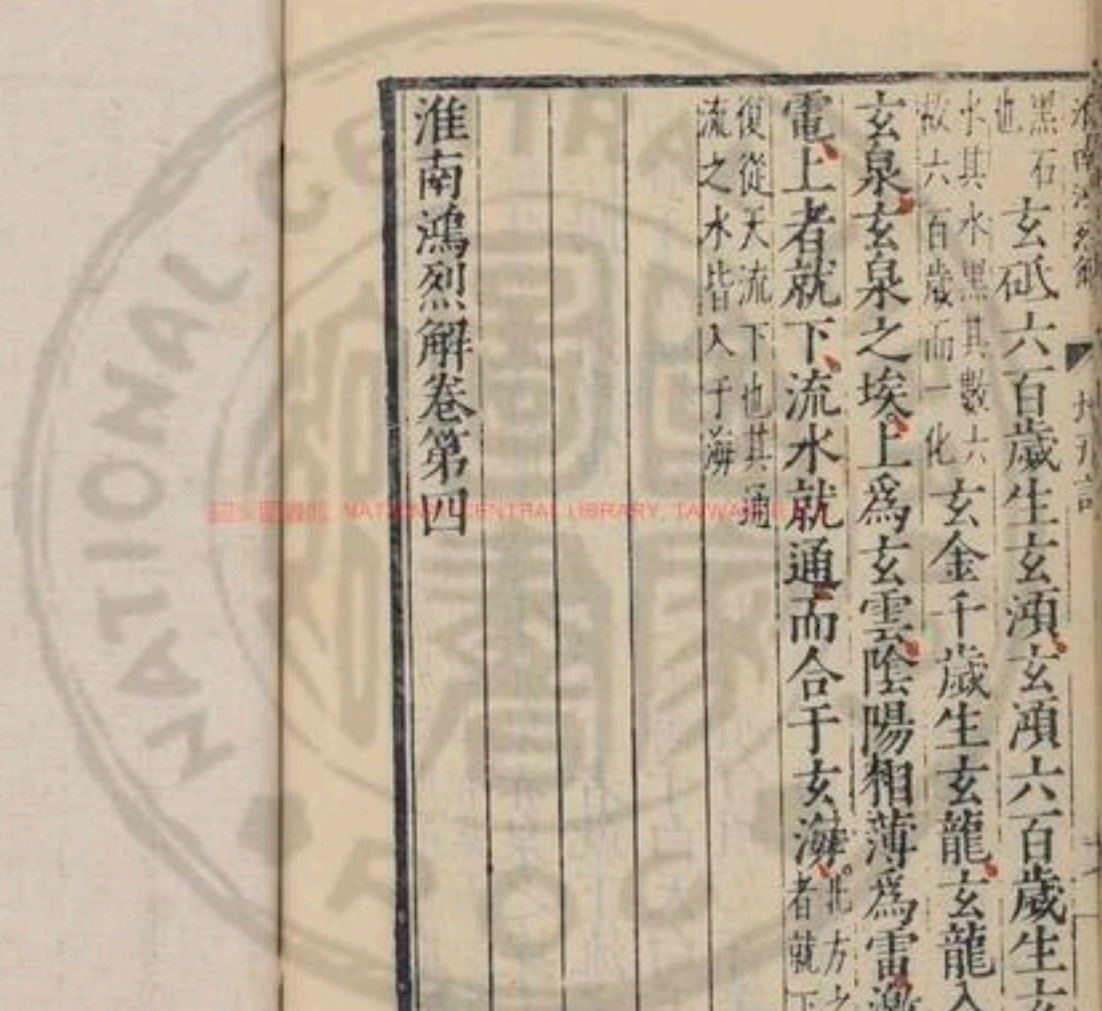 淮南鴻烈解
黑石
也
玄砥六百歲生玄澒玄澒六百歲生玄
水其水黑其數六
故六百歲而一化
玄金千歲生玄龍玄龍入
玄泉玄泉之埃上爲玄雲陰陽相薄爲雷激
電上者就下流水就通而合于玄海
北方之
者就下
復從天流下也其通
流之水皆入于海
淮南鴻烈解卷第四
NATIONAL CENTRAL LIBRARY, TAIWAN
NATIONAL